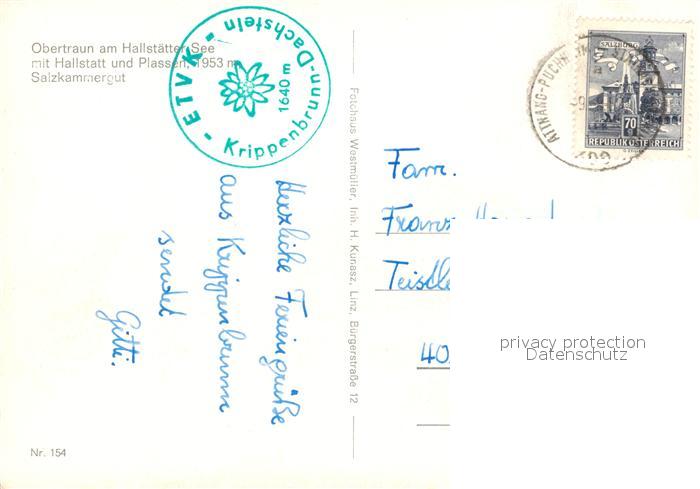 Obertraun am Hallstätter See
mit Hallstatt und Plassen, 1953 m
Salzkammergut
- ETVK - Krippenbrunn-Dachstein
1640 m
Herzliche Feriengrüße
aus Krippenbrunn
sendet
Gitti.
Nr. 154
Fotohaus Westmüller, Inh. H. Kunasz, Linz, Bürgerstraße 12
SALZBURG
70
REPUBLIK ÖSTERREICH
ATTNANG-PUCHHEIM
Fam.
Franz
40
privacy protection
Datenschutz